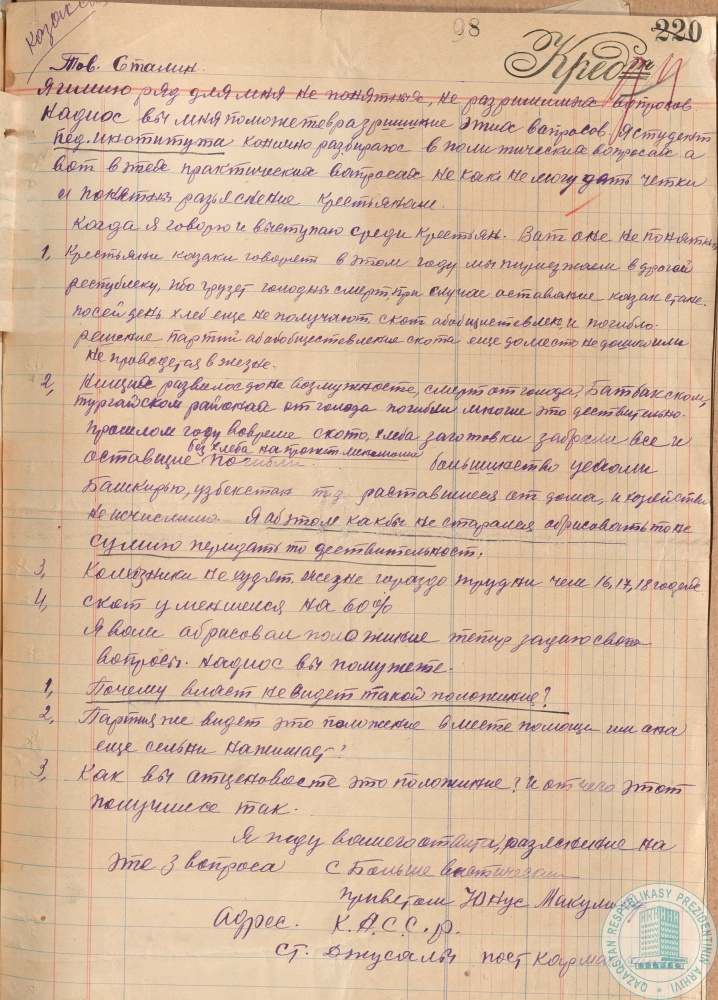 казакск
98
220
Кредит
Тов. Сталин.
Я имию ряд для мня не понятные, не разришимых вопросов
надиос вы мня поможете в разришение этих вапросов. Я студент
Пед. института конишо разбираюс в политических вопросах а
вот в этех практических вапросах не как не могу дать четки
и понятны разяснение крестьянам.
Когда я говорю и выступаю среди крестьян. Ват оне не понятны
1, Крестьяни казаки говорет в этом году мы пириезжаем в другой
республеку, ибо грузет голодны смерт, при случае оставание казакстане.
посей день хлеб еще не получают. скот абобществлен и погибло.
решение партий абобобществление скота еще до место не дошло или
не проводетса в жезне.
2, Нищие развилос до не возмужносте, смерт от голода, Батбакском,
тургайском районах от голода погибли многие это дествительно.
Прошлом году вовреме ското, хлеба заготовки забрали все и
без хлеба на прожет
оставшие погибли. большинство уехали
Башкирью, узбекстан т.д. раставшиеся от дома, и хозяйстви
не исчислимо. Я аб этом как бы не старался абрисовать то не
сумию пиридать то дествительност.
3, Колхозники не худят. жезне гараздо трудни чем 16, 17, 18 годов
4, скот уменшился на 60%
Я вам абрисовал положиние тепир задаю свои
вопросы. надиос вы помужете.
1, Почему власт не видет такой положиние?
2, Партия же видет это положение вместе помощи им она
еще сельни нажимает?
3, Как вы атценоваете это положиние? и от чего этот
получился так.
Я жду вашего ответа, разяснение на
эте 3 вопроса с Большевистичиским
приветом Юнус Макули
Адрес. К.А.С.С.р.
ст. Джусалы пост Карма
QAZAQSTAN RESPÝBLIKASY PREZIDENTINIŃ ARHIVI